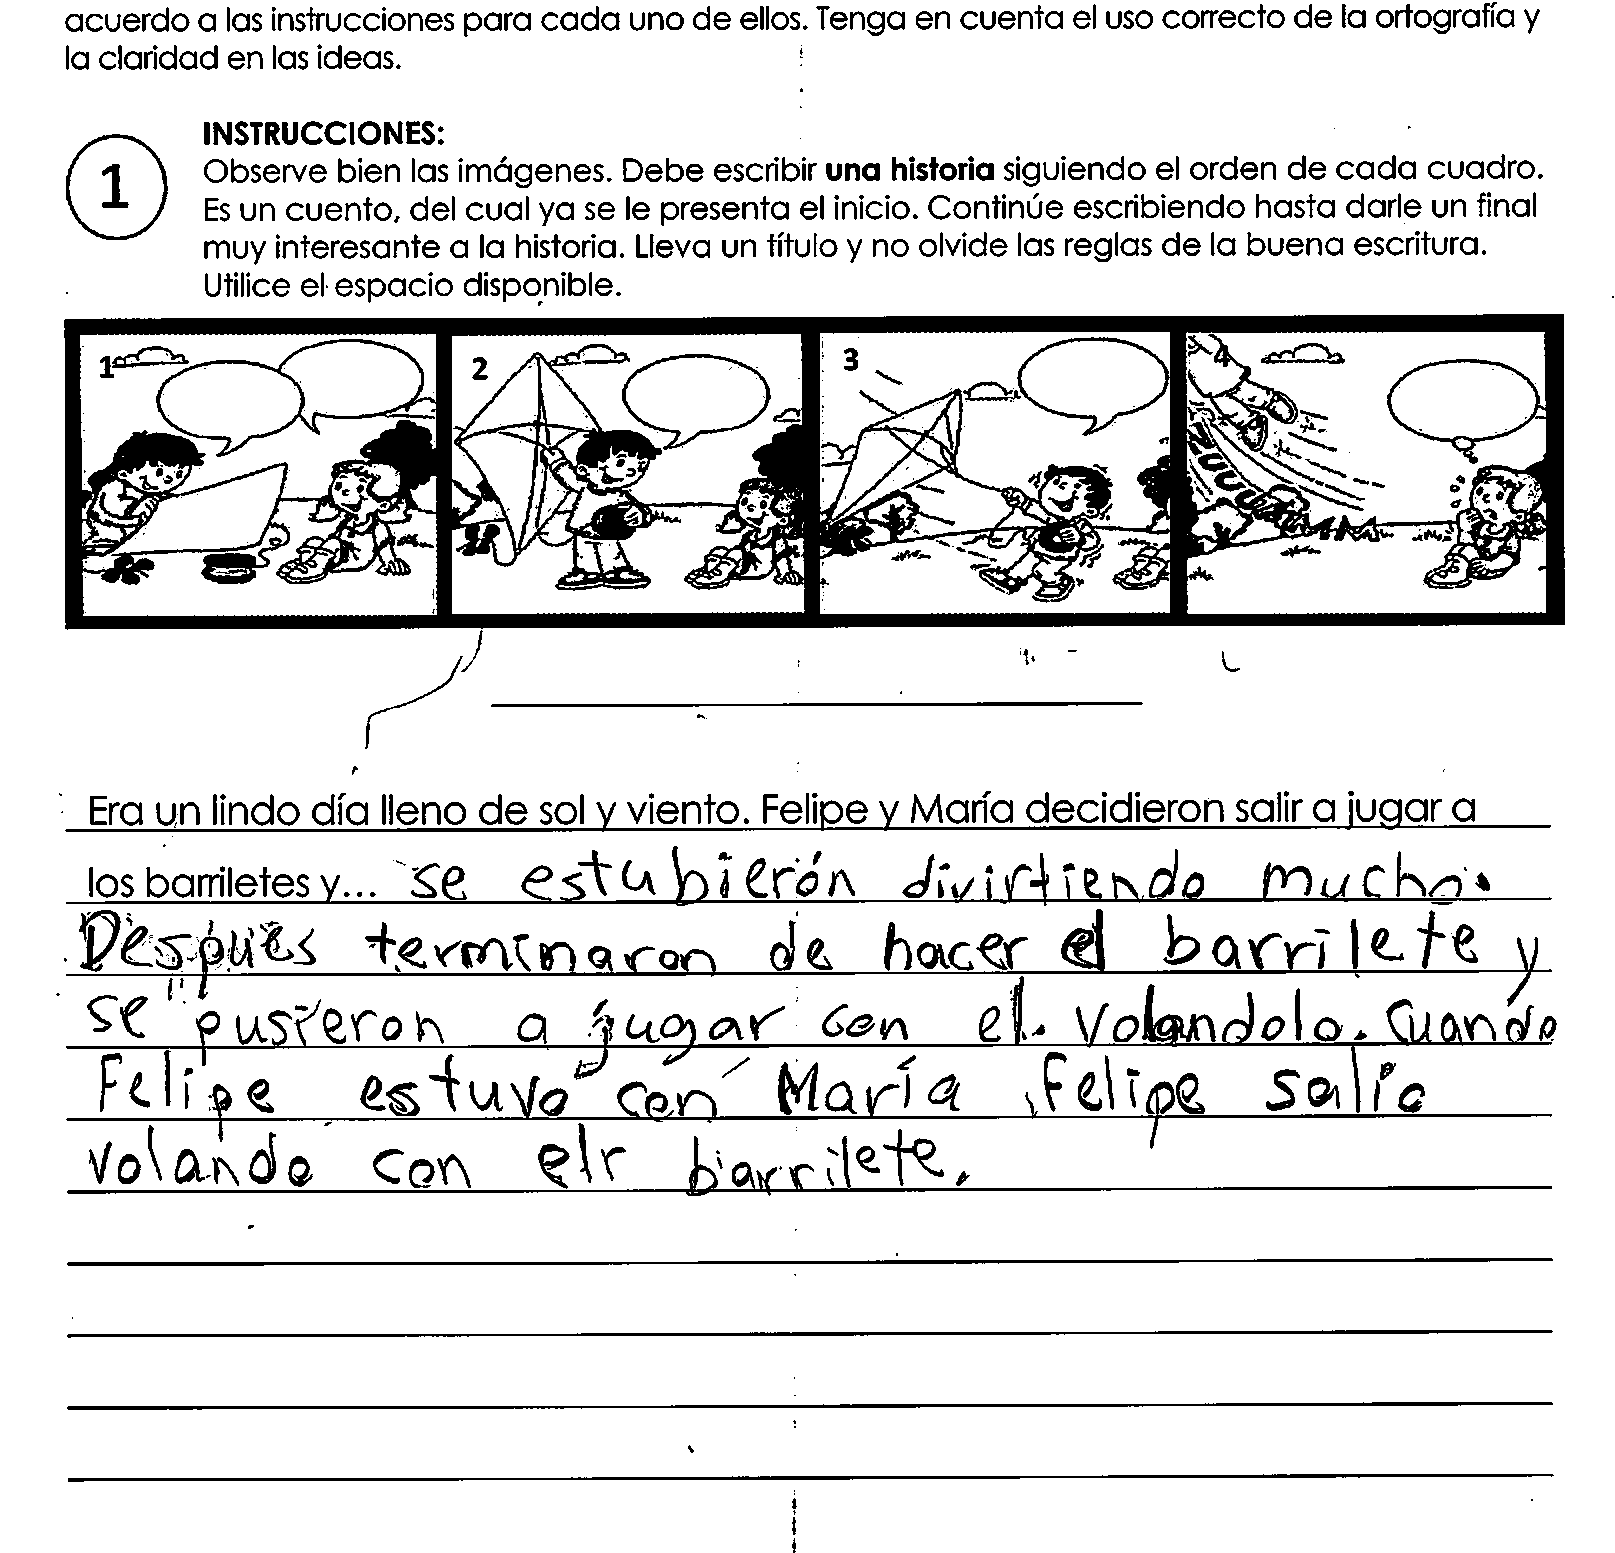 acuerdo a las instrucciones para cada uno de ellos. Tenga en cuenta el uso correcto de la ortografía y
la claridad en las ideas.
INSTRUCCIONES:
1
Observe bien las imágenes. Debe escribir una historia siguiendo el orden de cada cuadro.
Es un cuento, del cual ya se le presenta el inicio. Continúe escribiendo hasta darle un final
muy interesante a la historia. Lleva un título y no olvide las reglas de la buena escritura.
Utilice el espacio disponible.
1 2 3 4
Era un lindo día lleno de sol y viento. Felipe y María decidieron salir a jugar a
los barriletes y... se estubierón divirtiendo mucho.
Después terminaron de hacer el barrilete y
se pusieron a jugar con el. Volandolo. Cuando
Felipe estuvo con María, Felipe salío
volando con elr barrilete.